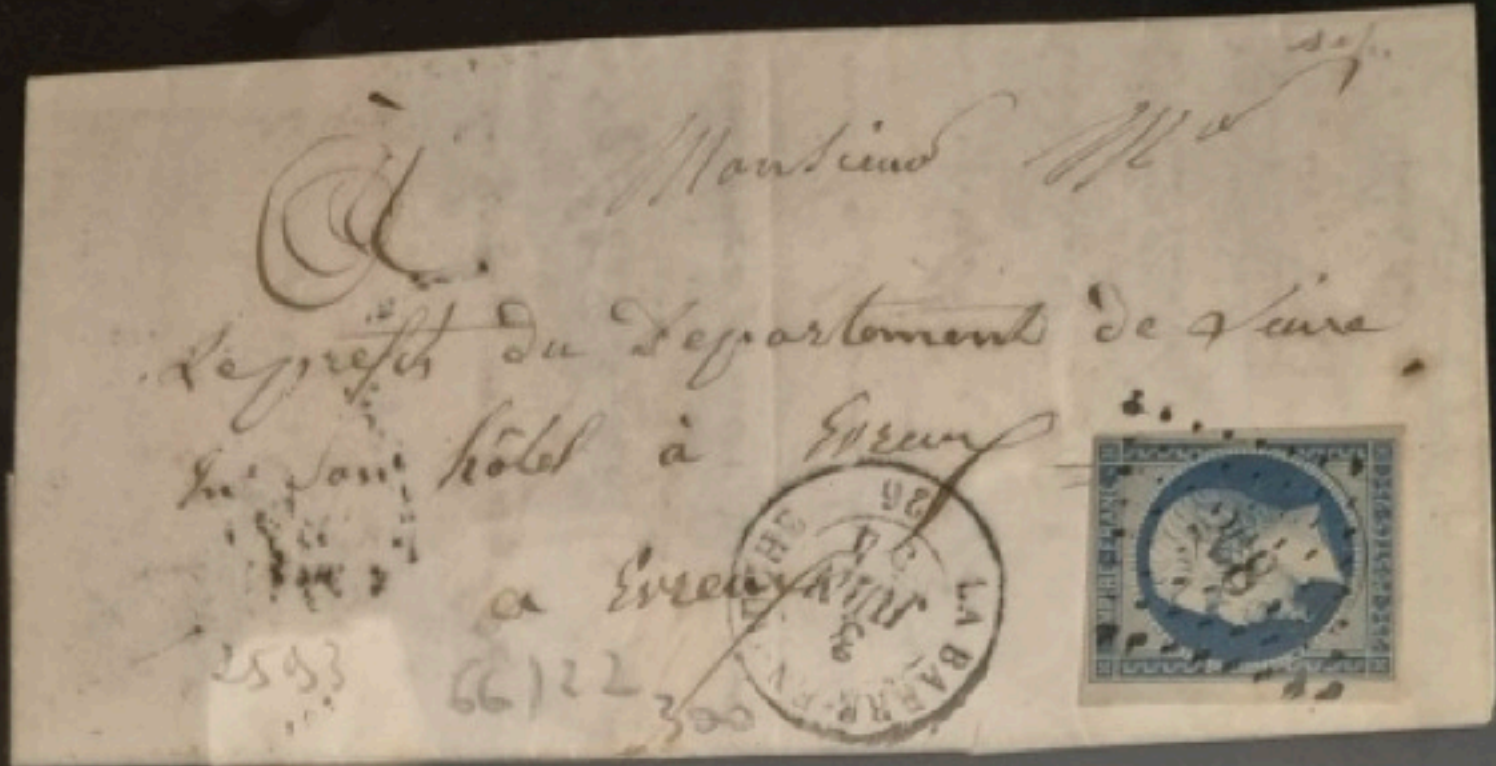 Monsieur
Le prefet du Departement de L'eure
En son hôtel à Evreux
a Evreux
LA BARRE-EN-OUCHE
26
2593
66122
300